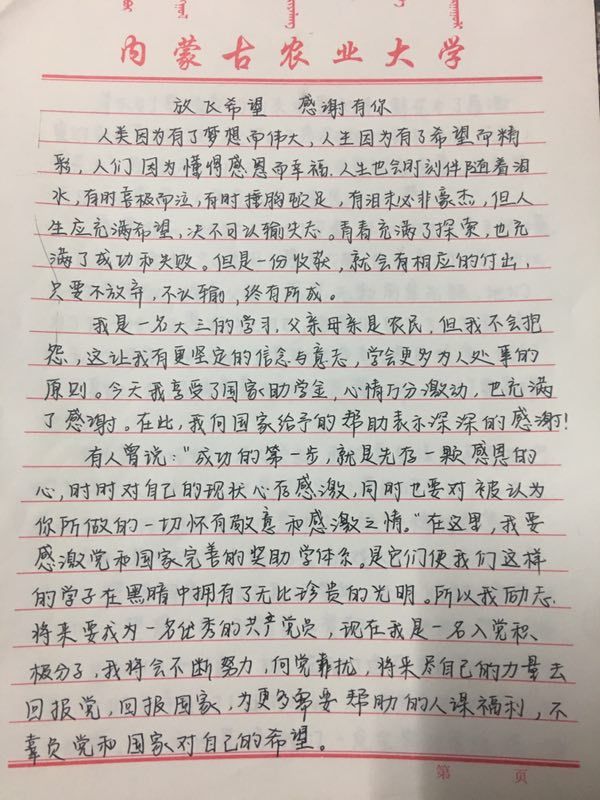 内蒙古农业大学
放飞希望 感谢有你
人类因为有了梦想而伟大，人生因为有了希望而精
彩，人们因为懂得感恩而幸福.人生也会时刻伴随着泪
水，有时喜极而泣，有时捶胸顿足，有泪未必非豪杰，但人
生应充满希望，决不可以输失态。青春充满了探索，也充
满了成功和失败。但是一份收获，就会有相应的付出，
只要不放弃，不认输，终有所成。
我是一名大三的学习，父亲母亲是农民，但我不会抱
怨，这让我有更坚定的信念与意志，学会更多为人处事的
原则。今天我享受了国家助学金，心情万分激动，也充满
了感谢。在此，我向国家给予的帮助表示深深的感谢！
有人曾说："成功的第一步，就是先存一颗感恩的
心，时时对自己的现状心存感激，同时也要对被认为
你所做的一切怀有敬意和感激之情。"在这里，我要
感激党和国家完善的奖助学体系。是它们使我们这样
的学子在黑暗中拥有了无比珍贵的光明。所以我励志
将来要成为一名优秀的共产党员，现在我是一名入党积
极分子，我将会不断努力，向党靠拢，将来尽自己的力量去
回报党，回报国家，为更多需要帮助的人谋福利，不
辜负党和国家对自己的希望。
第 页